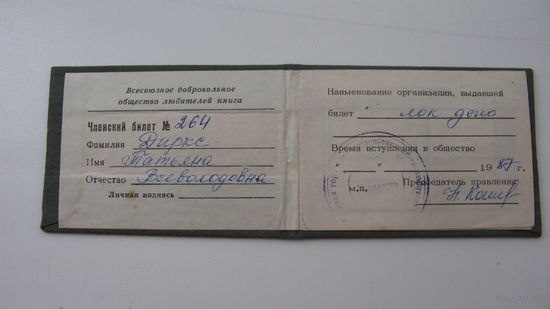 Всесоюзное добровольное
общество любителей книги
Членский билет № 264
Фамилия Диркс
Имя Татьяна
Отчество Всеволодовна
Личная подпись
Наименование организации, выдавшей
билет лок депо
Время вступления в общество
" " 1987 г.
м.п. Председатель правления